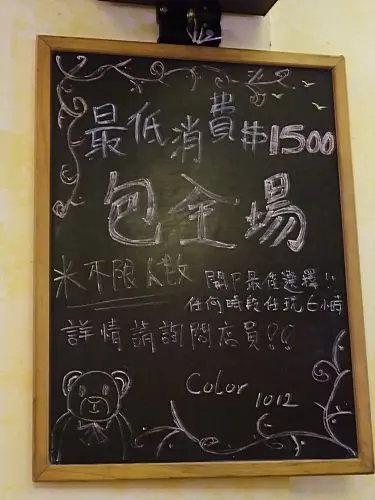 最低消費$1500
包全場
米不限人数
開P最佳選擇!!
任何時段任玩6小時
詳情請詢問店員!!
Color
1012